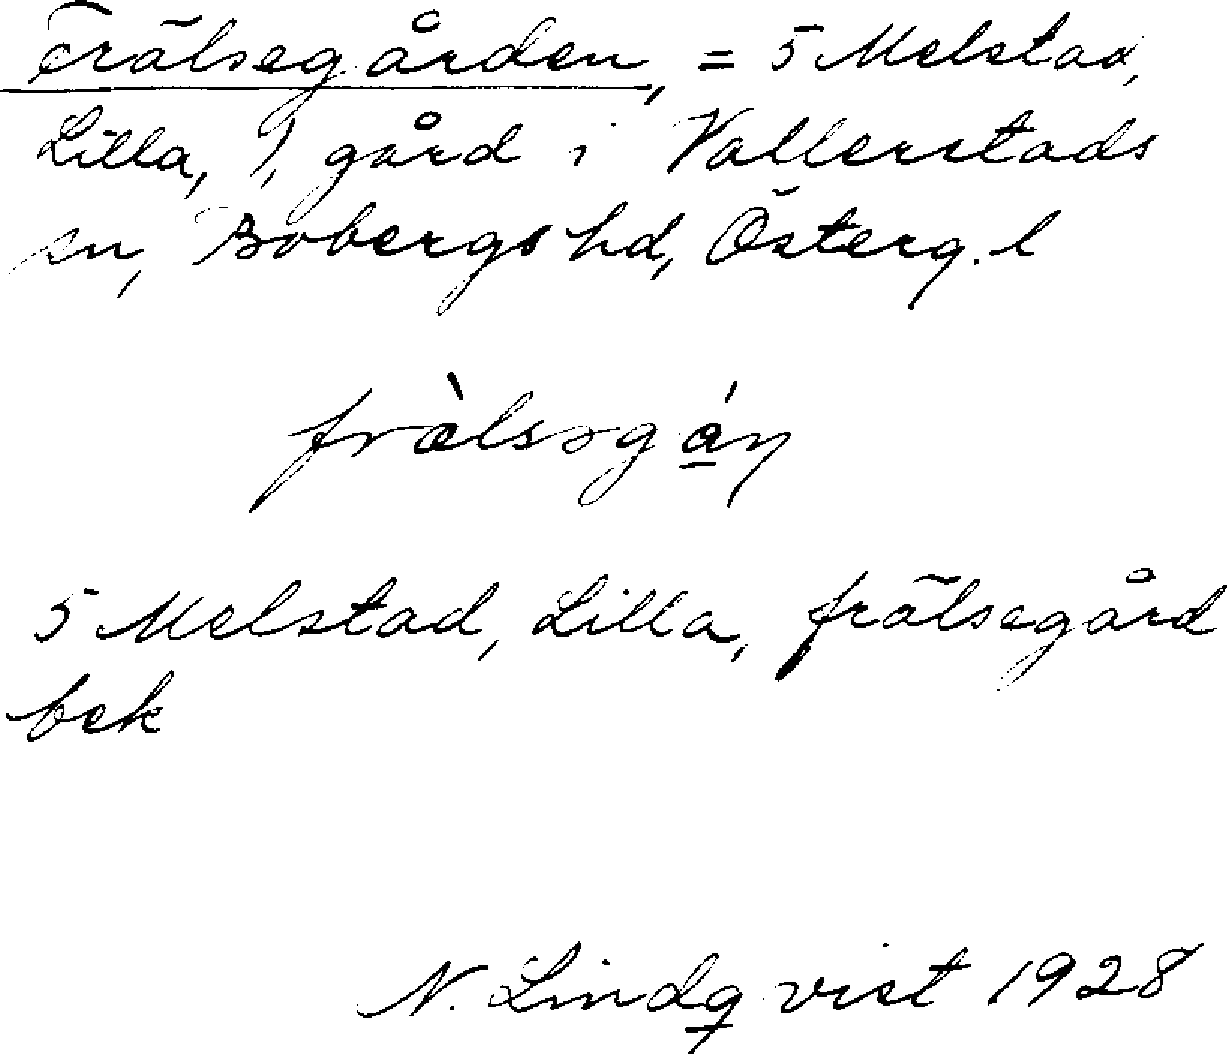 Frälsegården, = 5 Melstad,
Lilla, 1, gård i Vallerstads
sn, Bobergs hd, Österg. l
frä̀lsəgá̱ɳ
5 Melstad, Lilla, frälsegård
bek
N. Lindqvist 1928